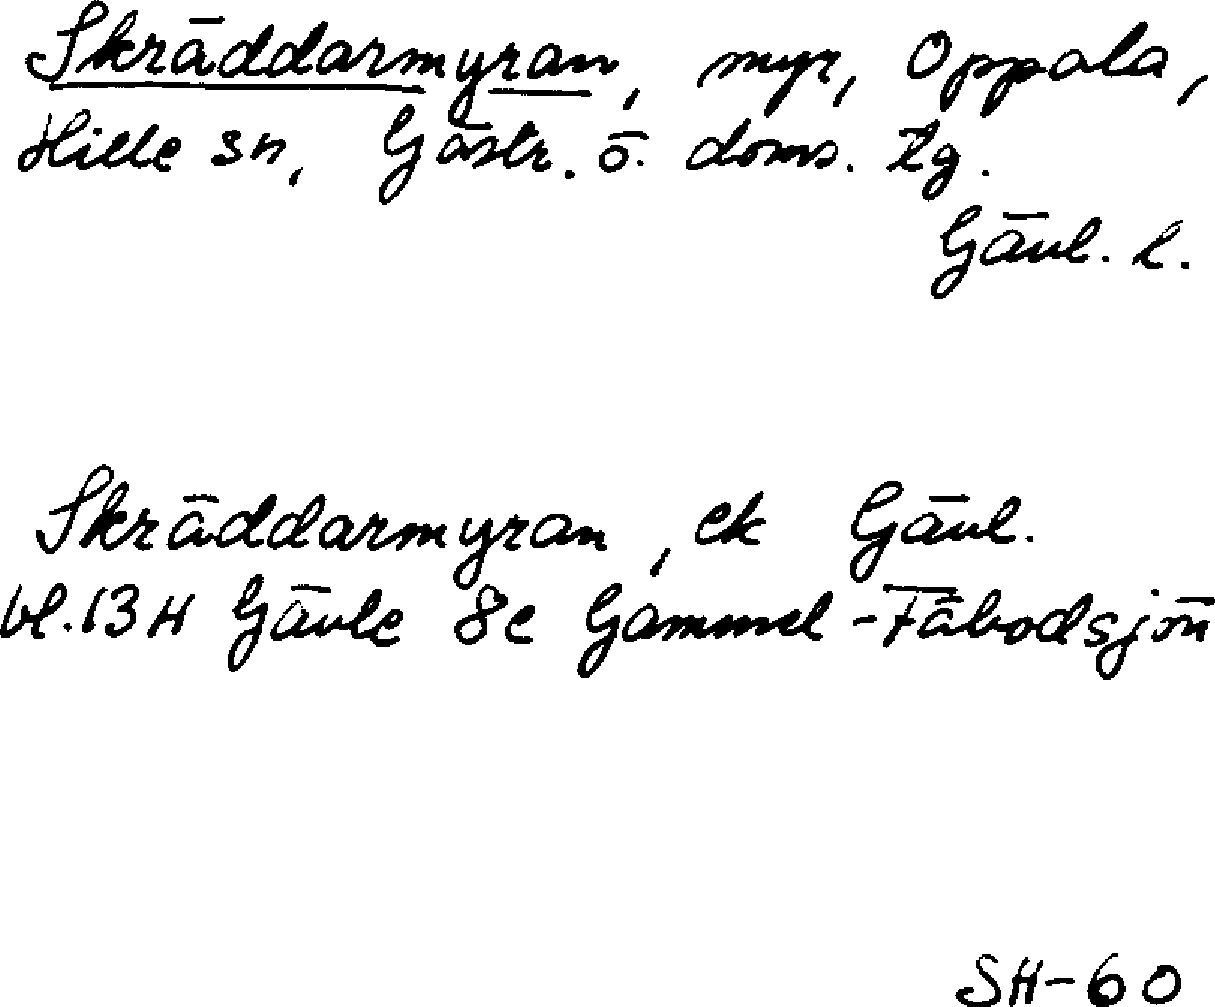 Skräddarmyran, myr, Oppala,
Hille sn, Gästr. ö. doms. tg.
Gävl. l.
Skräddarmyran, ek Gävl.
bl. 13 H Gävle 8e Gammel-Fäbodsjön
SH-60